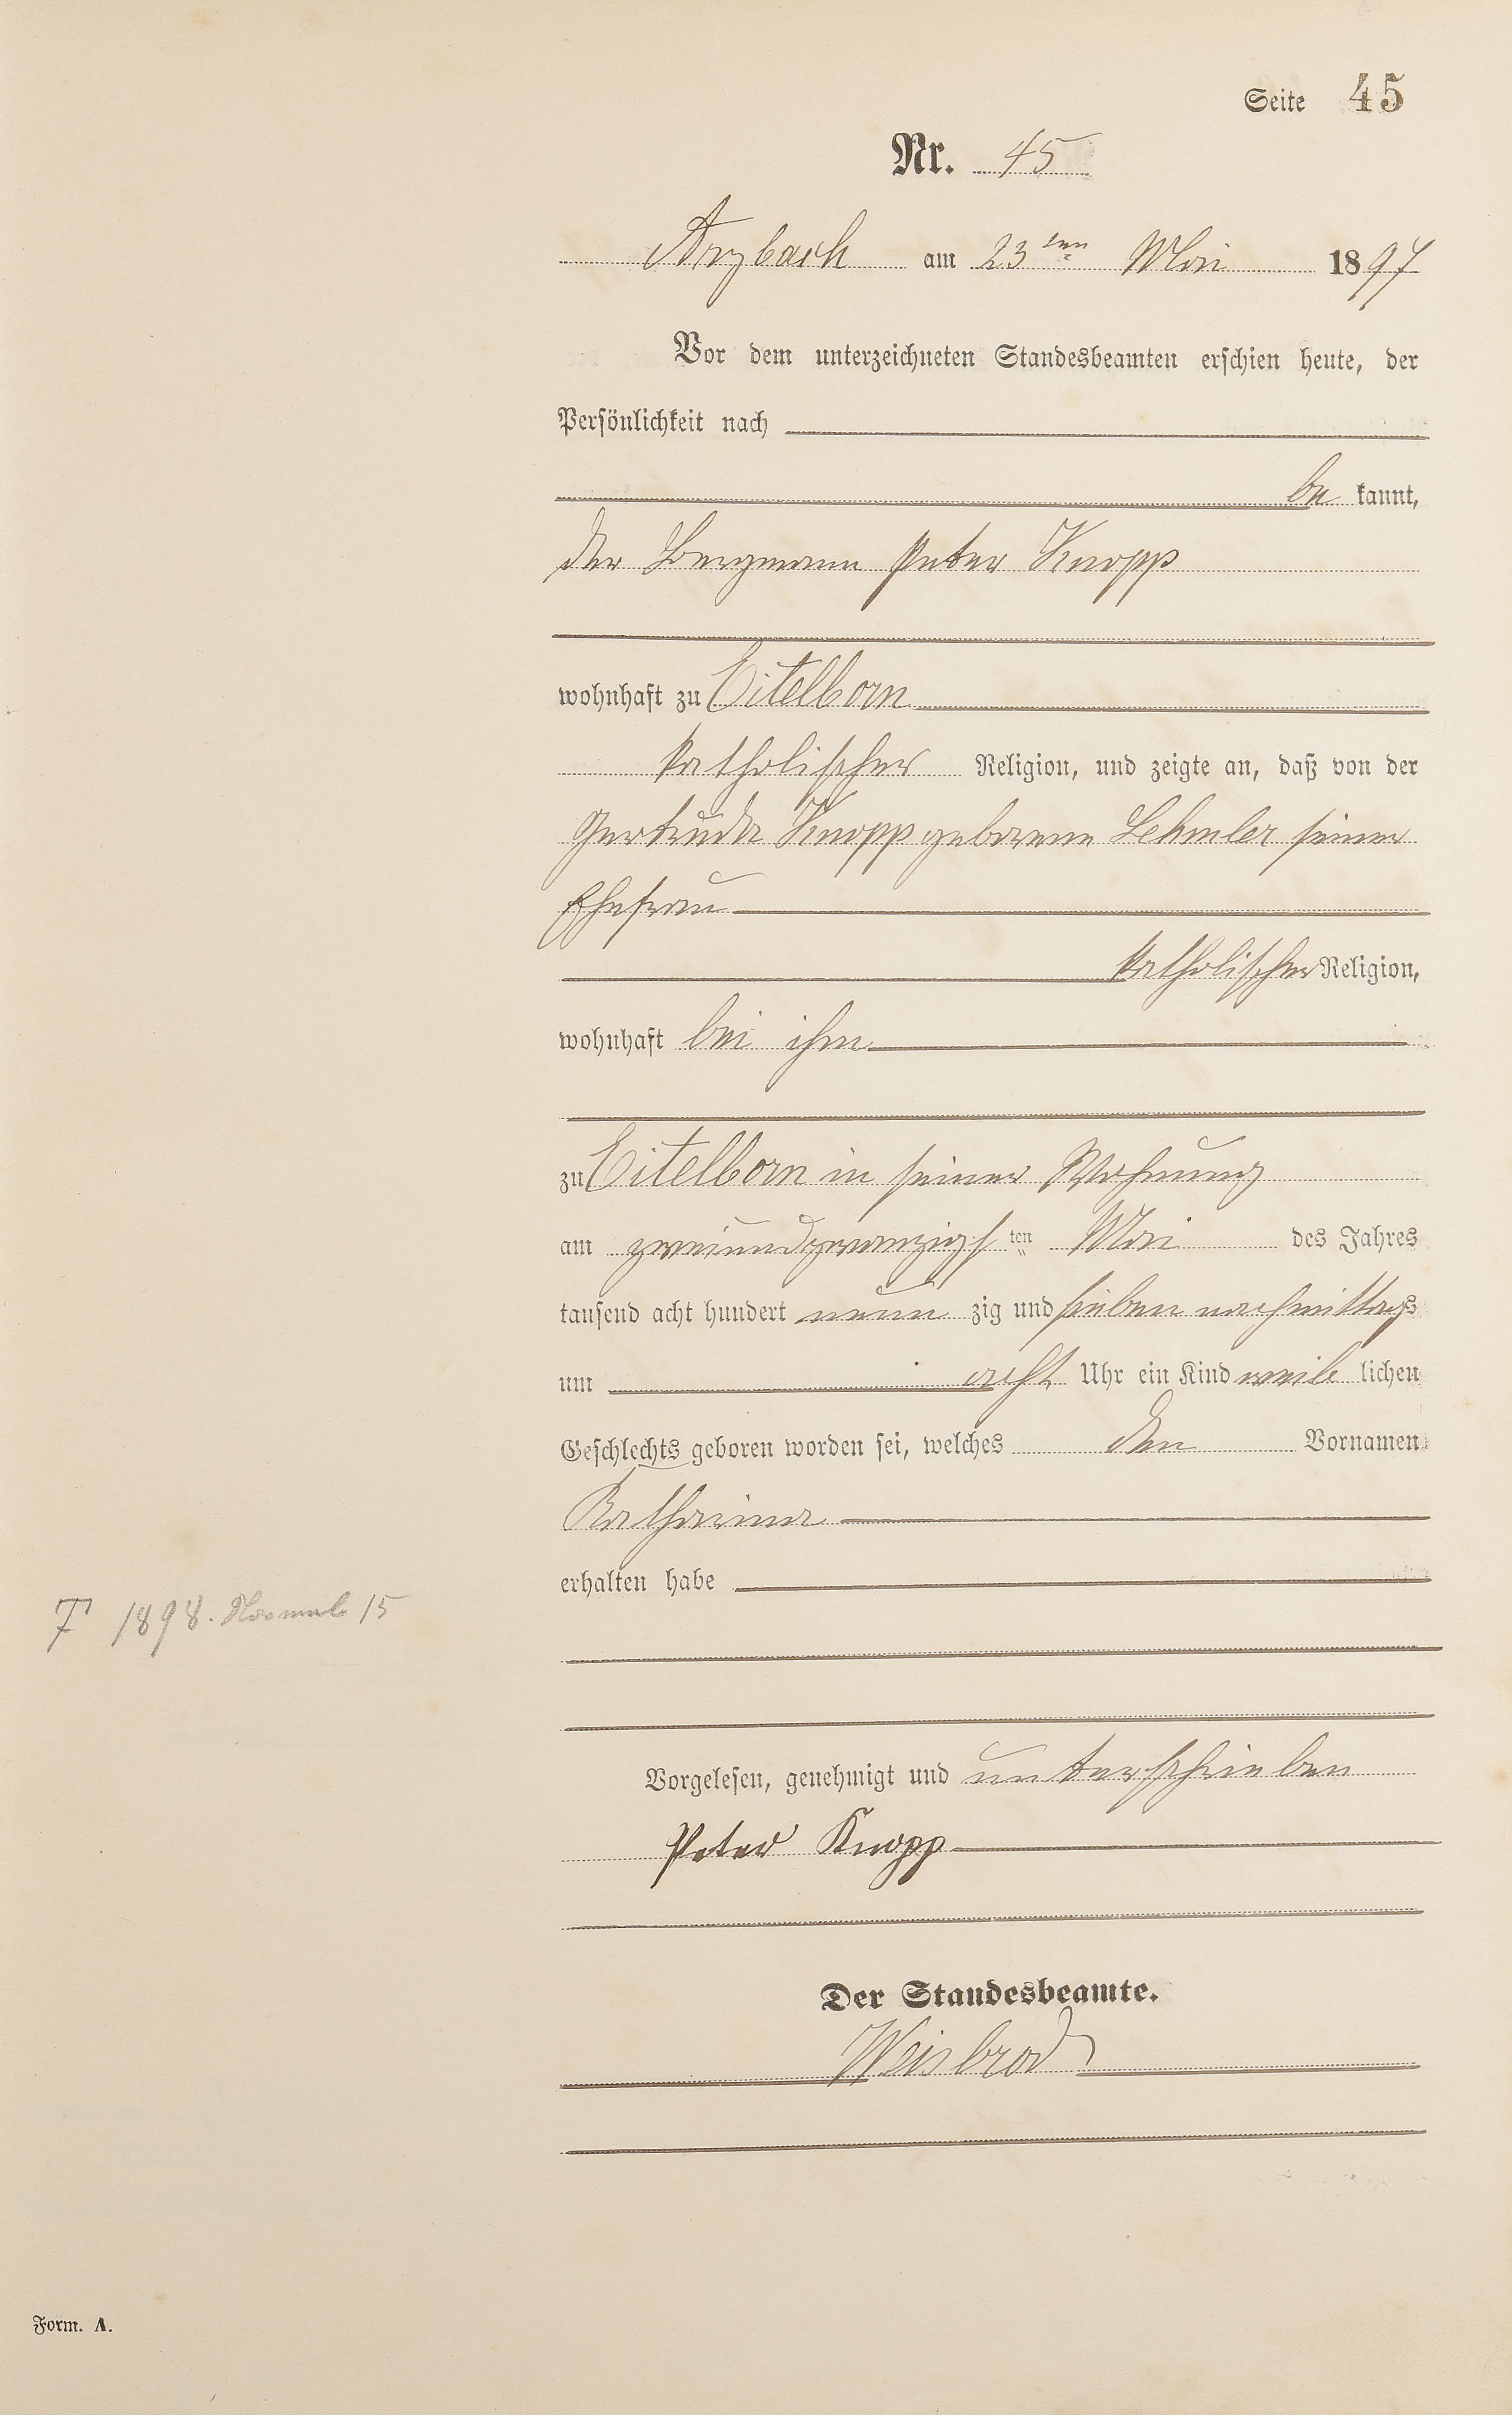 Seite 45
Nr. 45
Arzbach am 23ten Mai 1897
Vor dem unterzeichneten Standesbeamten erschien heute, der
Persönlichkeit nach
be kannt,
der Bergmann Peter Knopp
wohnhaft zu Eitelborn
katholischer Religion, und zeigte an, daß von der
Gertruda Knopp geborene Lehmler seiner
Ehefrau
katholischer Religion,
wohnhaft bei ihm
zu Eitelborn in seiner Wohnung
am zweiundzwanzigsten Mai des Jahres
tausend acht hundert neun zig und sieben nachmittags
um acht Uhr ein Kind weib lichen
Geschlechts geboren worden sei, welches den Vornamen
Katharina
erhalten habe
† 1898. 15
Vorgelesen, genehmigt und unterschrieben
Peter Knopp
Der Standesbeamte.
Weisbrod
Form. A.